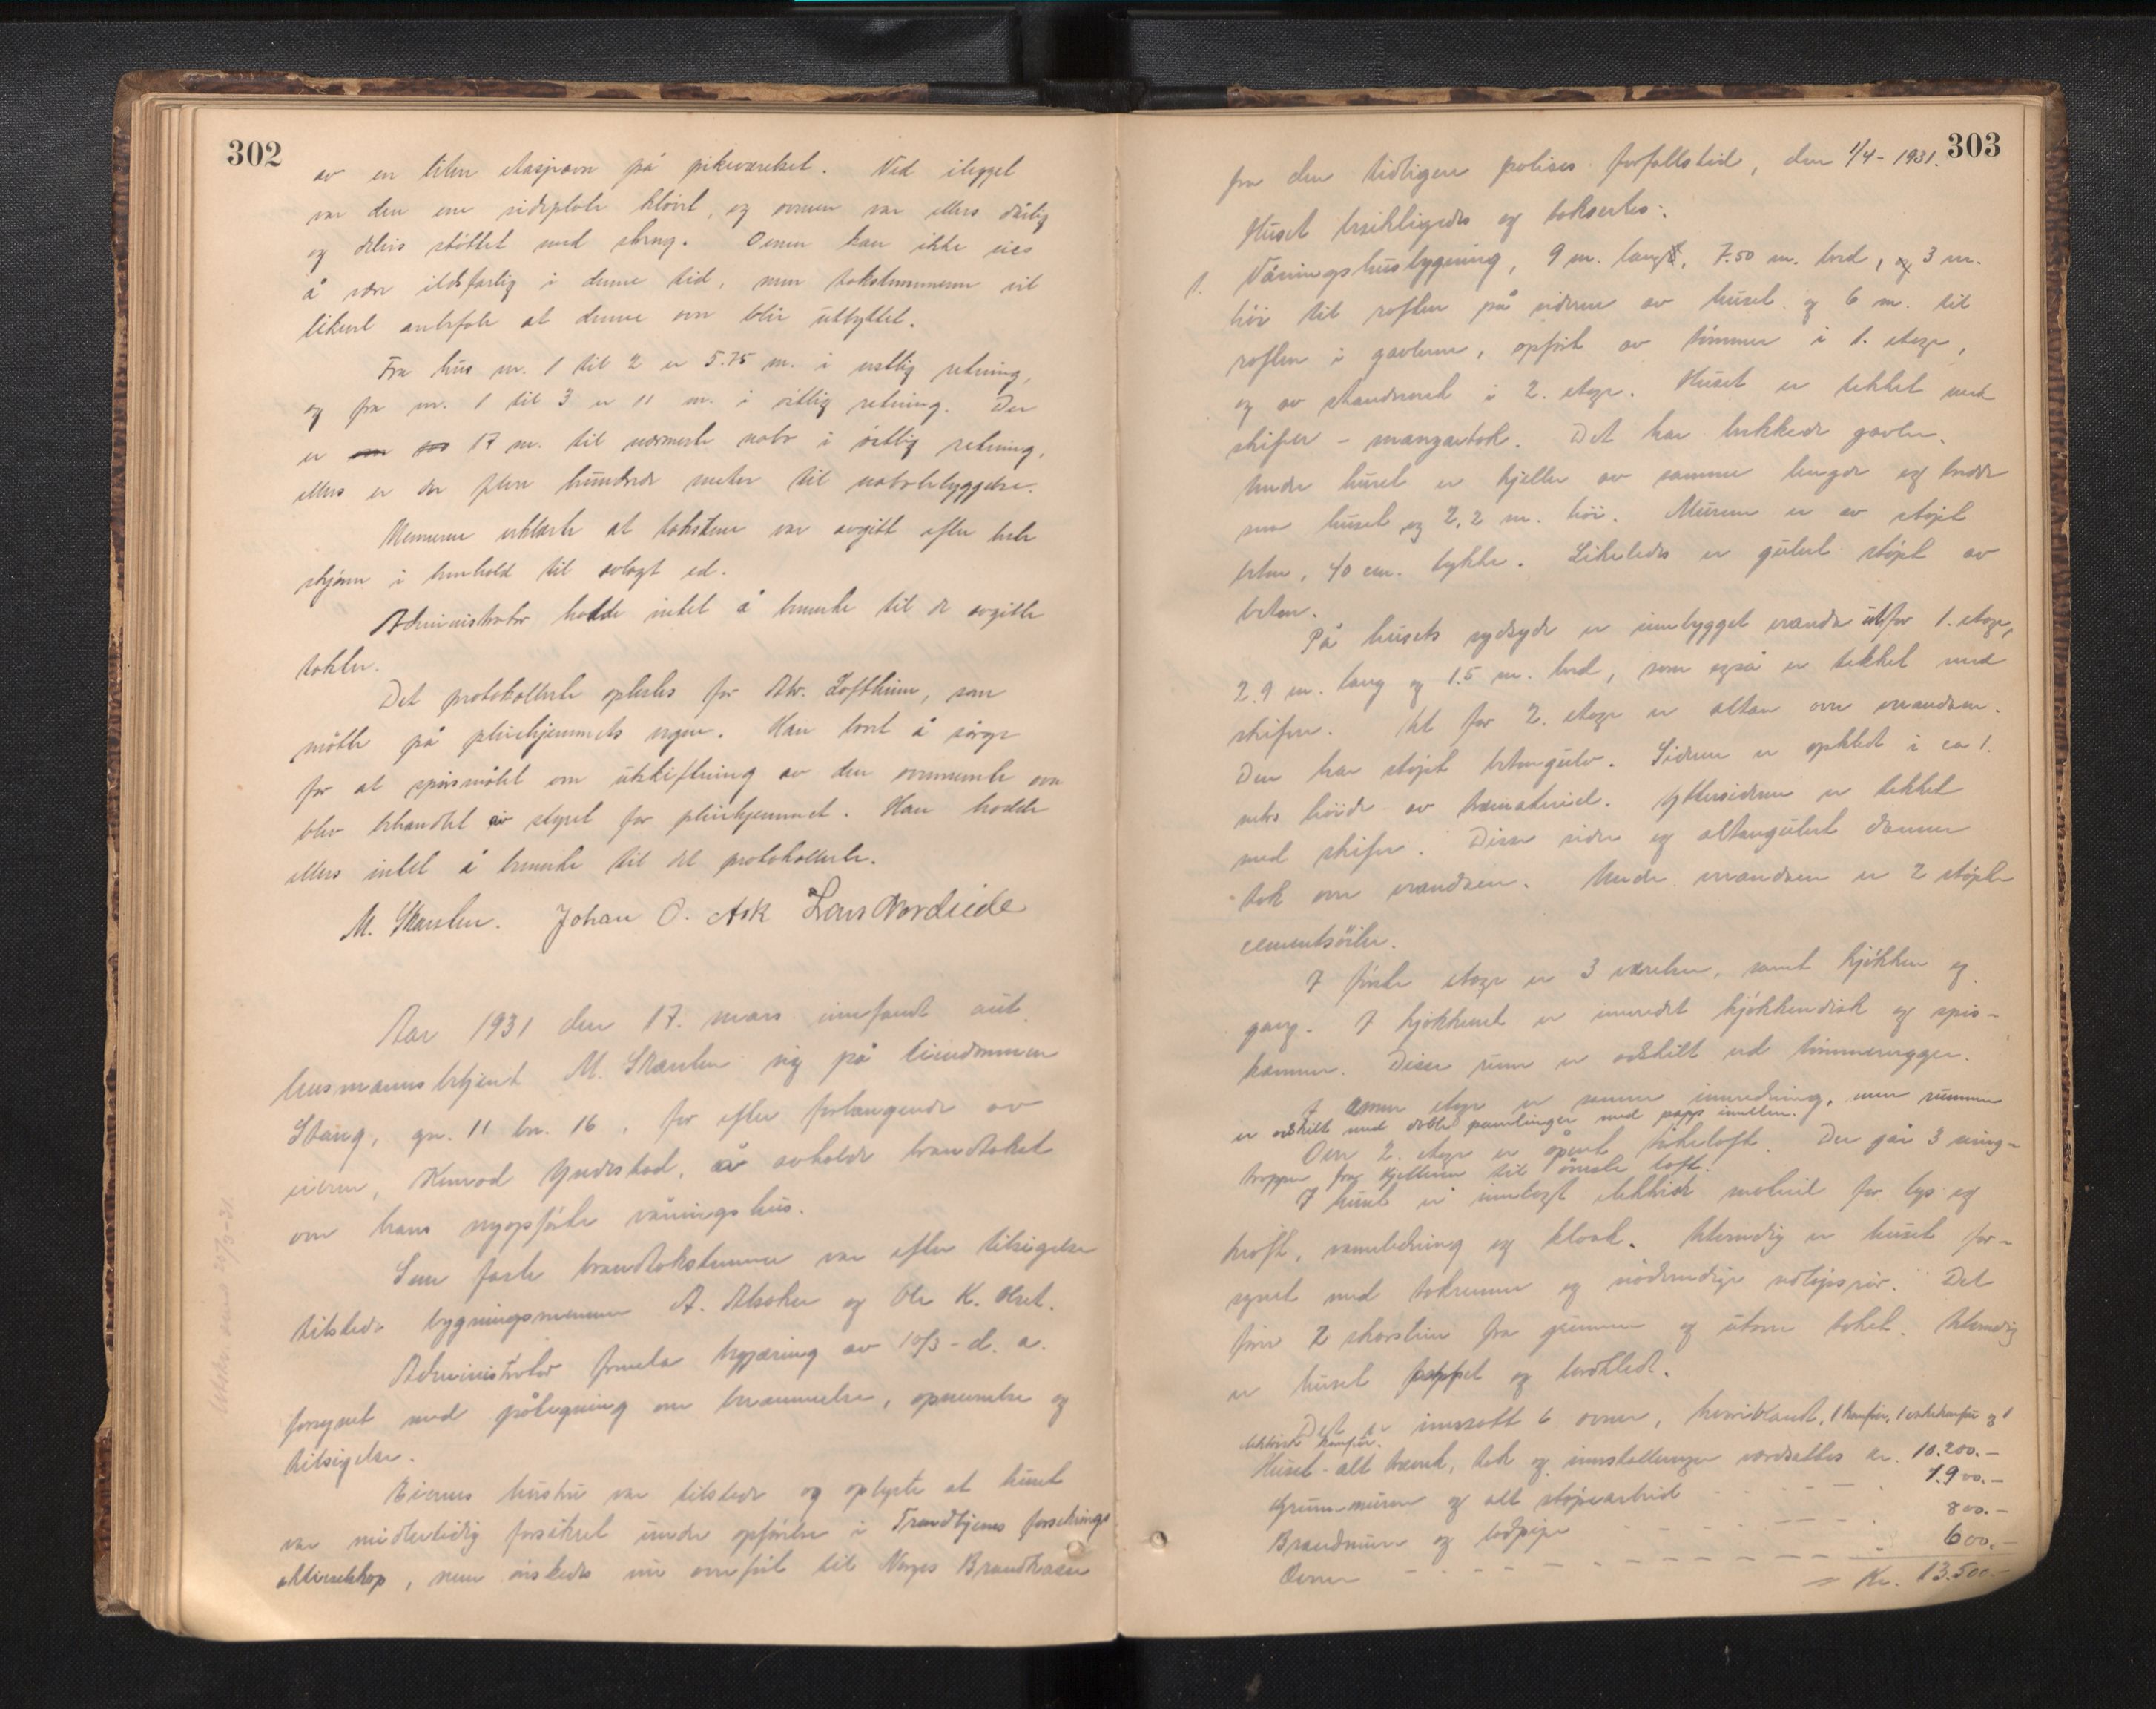 302
av en liten etasjeovn på pikeværelset. Ved ilegget
var den ene sideplate kløvet, og ovnen var ellers dårlig
og delvis støttet med streng. Ovnen kan ikke sies
å være ildsfarlig i denne tid, men takstmennene vil
likevel anbefale at denne ovn blir utbyttet.
Fra hus nr. 1 til 2 er 5.75 m. i vestlig retning,
og fra nr. 1 til 3 er 11 m. i østlig retning. Der
er 17 m. til nærmeste nabo i østlig retning,
ellers er der flere hundrede meter til nabobebyggelse.
Mennene erklærte at takstene var avgitt efter beste
skjønn i henhold til avlagt ed.
Administrator hadde intet å bemerke til de avgitte
takster.
Det protokollerte oplestes for Abr. Loftheim, som
møtte på pleiehjemmets vegne. Han lovet å sørge
for at spørsmålet om utskiftning av den ovnnevnte ovn
blev behandlet av styret for pleiehjemmet. Han hadde
ellers intet å bemerke til det protokollerte.
M. Skaslien. Johan O. Ask Lars Nordeide
Aar 1931 den 17. mars innfandt aut.
lensmannsbetjent M. Skaslien sig på eiendommen
Skaug, gn. 11 bn. 16, for efter forlangende av
eieren, Konrad Yndestad, å avholde brandtakst
over hans nyopførte våningshus.
Som faste brandtakstmenn var efter tilsigelse
tilstede bygningsmennene A. Alsaker og Ole K. Olset.
Administrator fremla begjæring av 10/3 - d. a.
forsynet med påtegning om berammelse, opnevnelse og
tilsigelse.
Eierens hustru var tilstede og oplyste at huset
var midlertidig forsikret under opførelse i Trondhjems forsikrings
aktieselskap, men ønskedes nu overført til Norges Brandkasse
303
fra den tidligere polises forfallstid, den 1/4 - 1931.
Huset besiktigedes og takseres:
1. Våningshusbygning, 9 m. lang, 7.50 m. bred, og 3 m.
høi til røsten på sidene av huset og 6 m. til
røsten i gavlene, opført av tømmer i 1. etage,
og av standverk i 2. etage. Huset er tekket med
skifer - mansardtak. Det har brukkede gavler.
Under huset er kjeller av samme lengde og bredde
som huset og 2,2 m. høi. Murene er av støpt
beton, 40 cm. tykke. Likeledes er gulvet støpt av
beton.
På husets sydside er innbygget veranda utfor 1. etage,
2.9 m. lang og 1.5 m. bred, som også er tekket med
skifer. Ut for 2. etage er altan over verandaen.
Den har støpt betongulv. Sidene er opkledt i ca 1.
meters høide av trematerial. Yttersidene er tekket
med skifer. Disse sider og altangulvet danner
tak over verandaen. Under verandaen er 2 støpte
cementsøiler.
I første etage er 3 værelser, samt kjøkken og
gang. I kjøkkenet er innredet kjøkkendisk og spis-
kammer. Disse rum er adskilt ved tømmervegger.
I annen etage er samme innredning, men rummene
er adskilt med doble panelinger med papp imellem.
Over 2. etage er åpent mørkeloft. Der går 3 sving-
trapper fra kjelleren til øverste loft.
I huset er innlagt elektrisk material for lys og
kraft, vannledning og kloak. Utvendig er huset for-
synet med takrenner og nødvendige nedløpsrør. Det
fører 2 skorsteiner fra grunnen og utover taket. Utvendig
er huset pappet og bordkledt.
Det er innsatt 6 ovner, heriblandt, 1 komfyr, 1 vaskekomfyr og 1
elektrisk komfyr.
Huset - alt treverk, tak og innstallasjoner værdsettes kr. 10.200.-
Grunnmuren og alt støpearbeid 1.900.-
Brandmur og ildpipe 800.-
Ovner 600.-
= Kr. 13.500.-